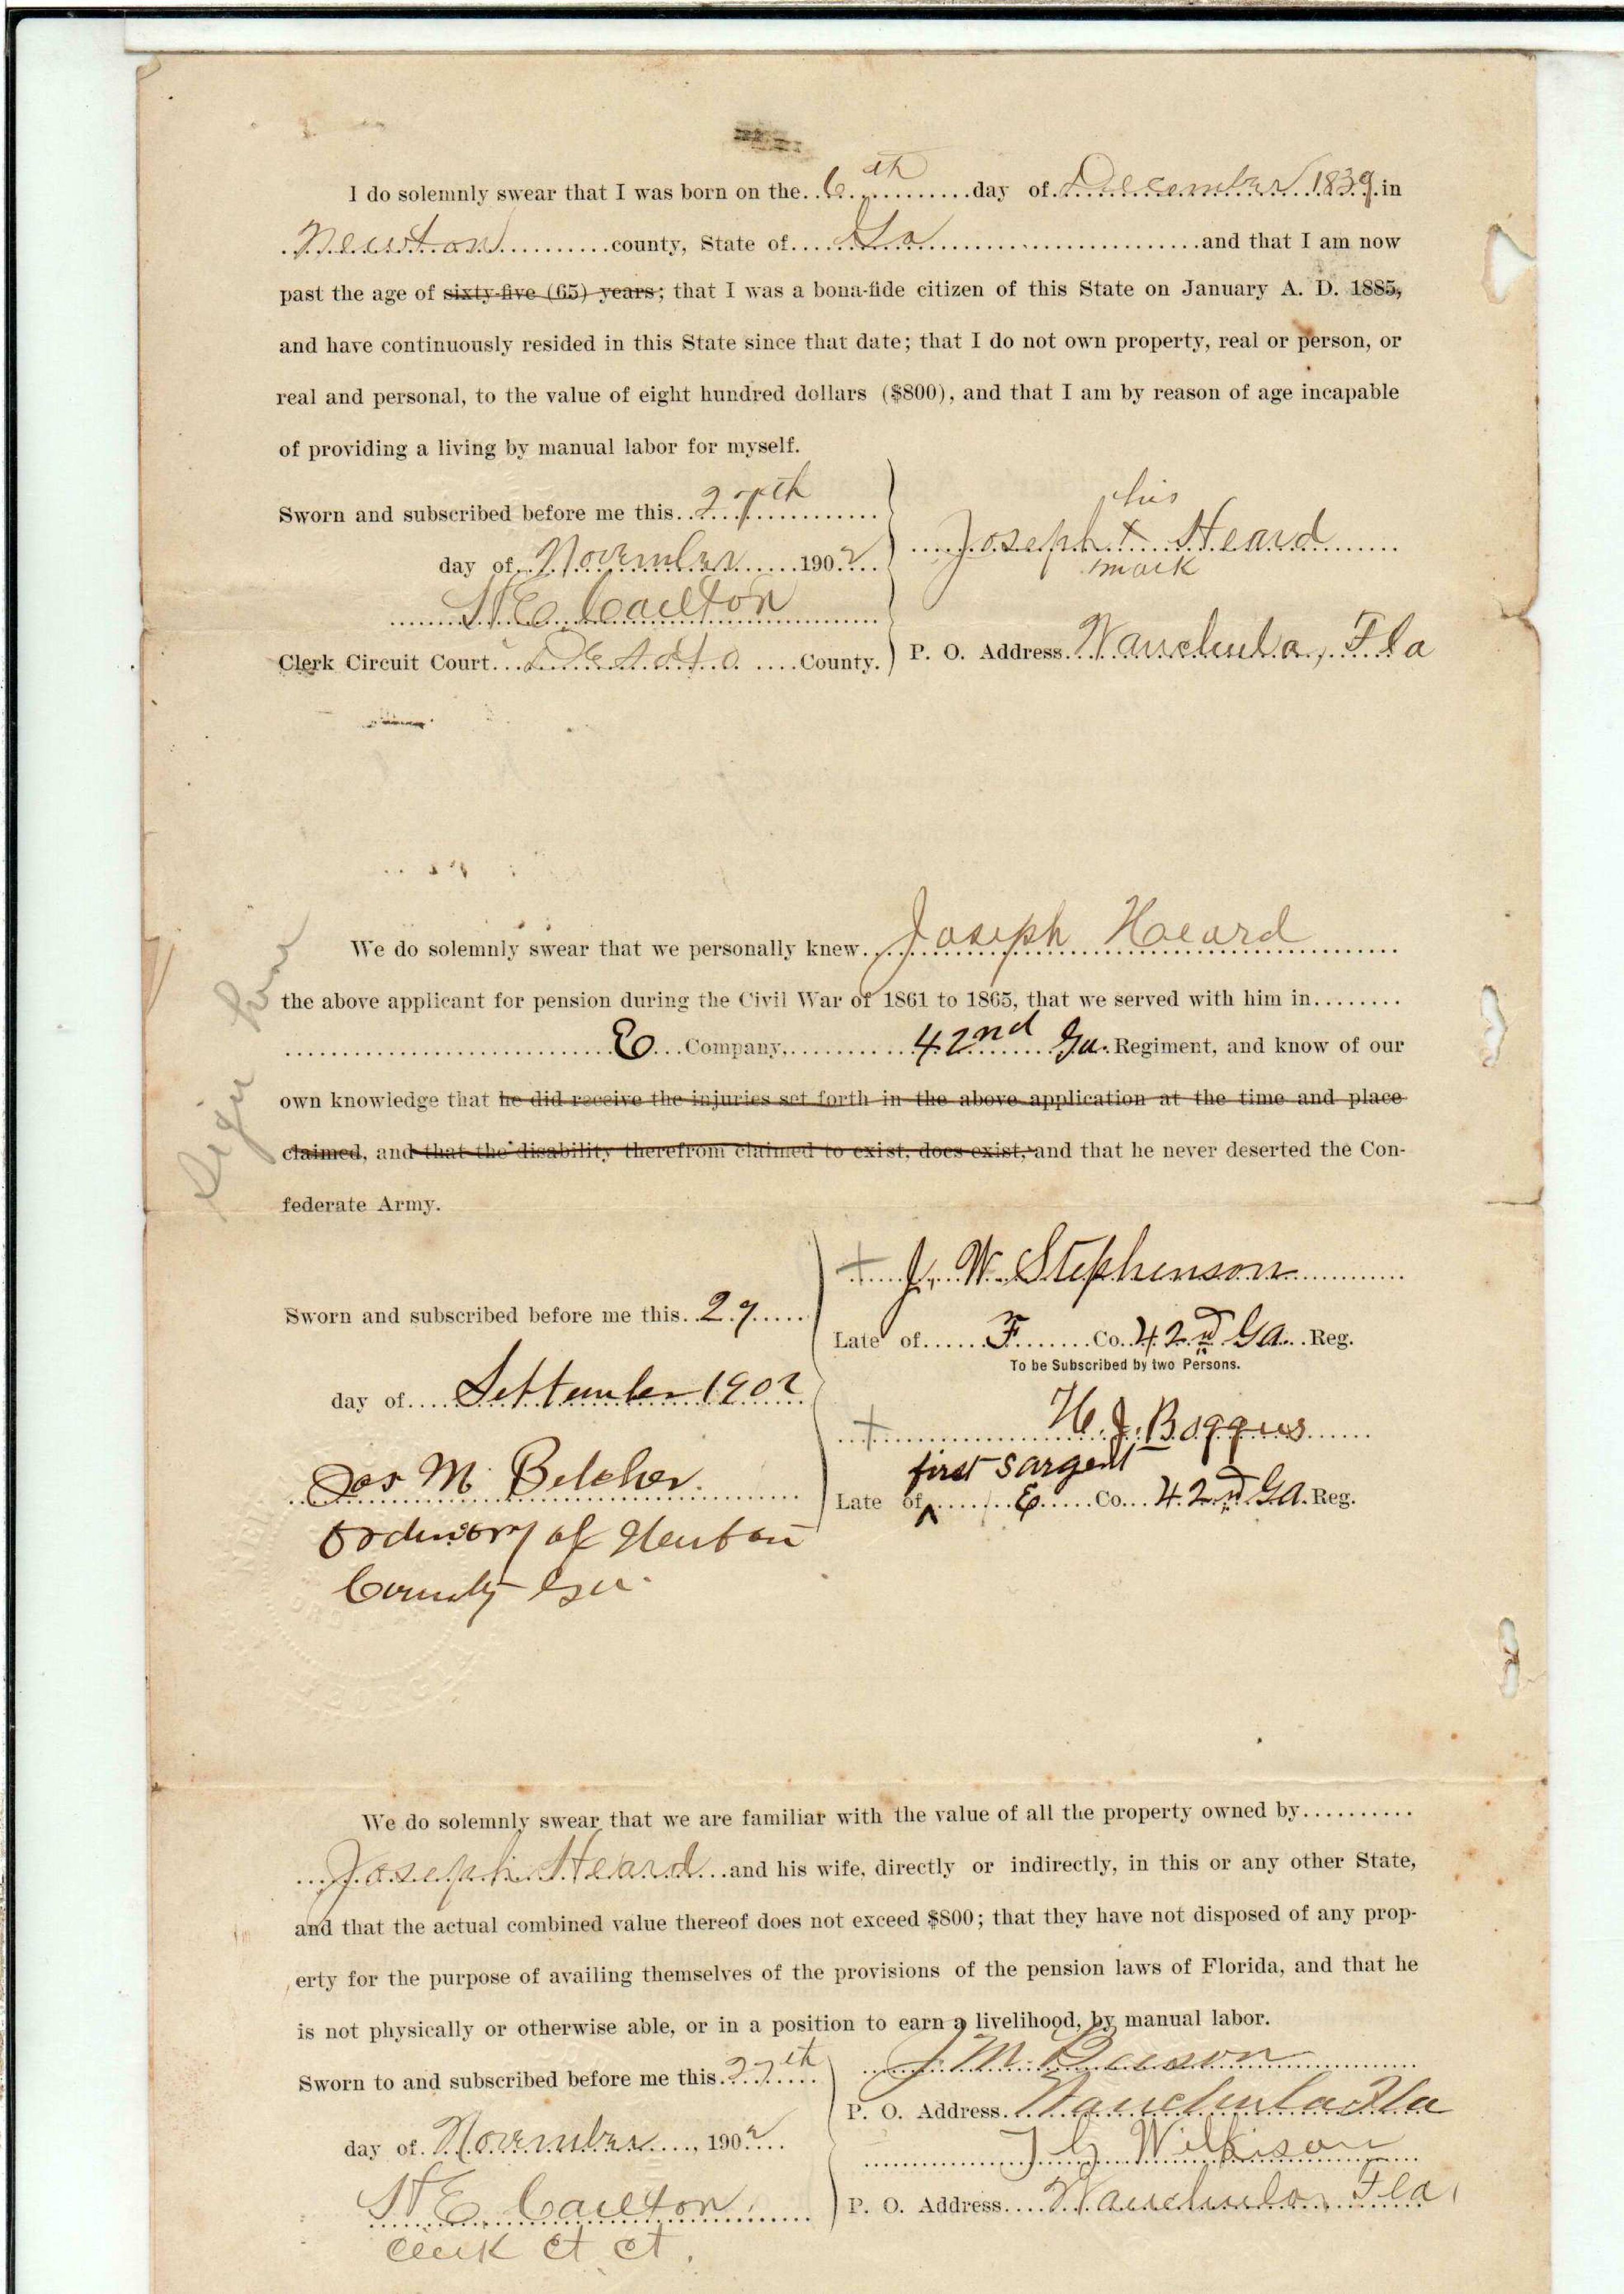 I do solemnly swear that I was born on the 6th day of December 1839 in
Newton county, State of Ga and that I am now
past the age of sixty-five (65) years; that I was a bona-fide citizen of this State on January A. D. 1885,
and have continuously resided in this State since that date; that I do not own property, real or person, or
real and personal, to the value of eight hundred dollars ($800), and that I am by reason of age incapable
of providing a living by manual labor for myself.
Sworn and subscribed before me this 27th
day of November 1902
his
Joseph X Heard
mark
S E Carlton
Clerk Circuit Court DeSoto County.
P. O. Address Wauchula, Fla
We do solemnly swear that we personally knew Joseph Heard
the above applicant for pension during the Civil War of 1861 to 1865, that we served with him in
E Company, 42nd Ga. Regiment, and know of our
own knowledge that he did receive the injuries set forth in the above application at the time and place
claimed, and that the disability therefrom claimed to exist, does exist, and that he never deserted the Con-
federate Army.
Sign here
Sworn and subscribed before me this 29
day of September 1902
Jos M. Belcher
Ordinary of Newton
County Ga.
+ J. W. Stephenson
Late of F Co. 42nd Ga. Reg.
To be Subscribed by two Persons.
+ H. J. Boggus
first sargent
Late of E Co. 42nd GA. Reg.
We do solemnly swear that we are familiar with the value of all the property owned by
Joseph Heard and his wife, directly or indirectly, in this or any other State,
and that the actual combined value thereof does not exceed $800; that they have not disposed of any prop-
erty for the purpose of availing themselves of the provisions of the pension laws of Florida, and that he
is not physically or otherwise able, or in a position to earn a livelihood, by manual labor.
Sworn to and subscribed before me this 27th
day of November, 1902
S E Carlton
Clerk Ct Ct.
J M
P. O. Address Wauchula Fla
J G Wilkison
P. O. Address Wauchula, Fla,